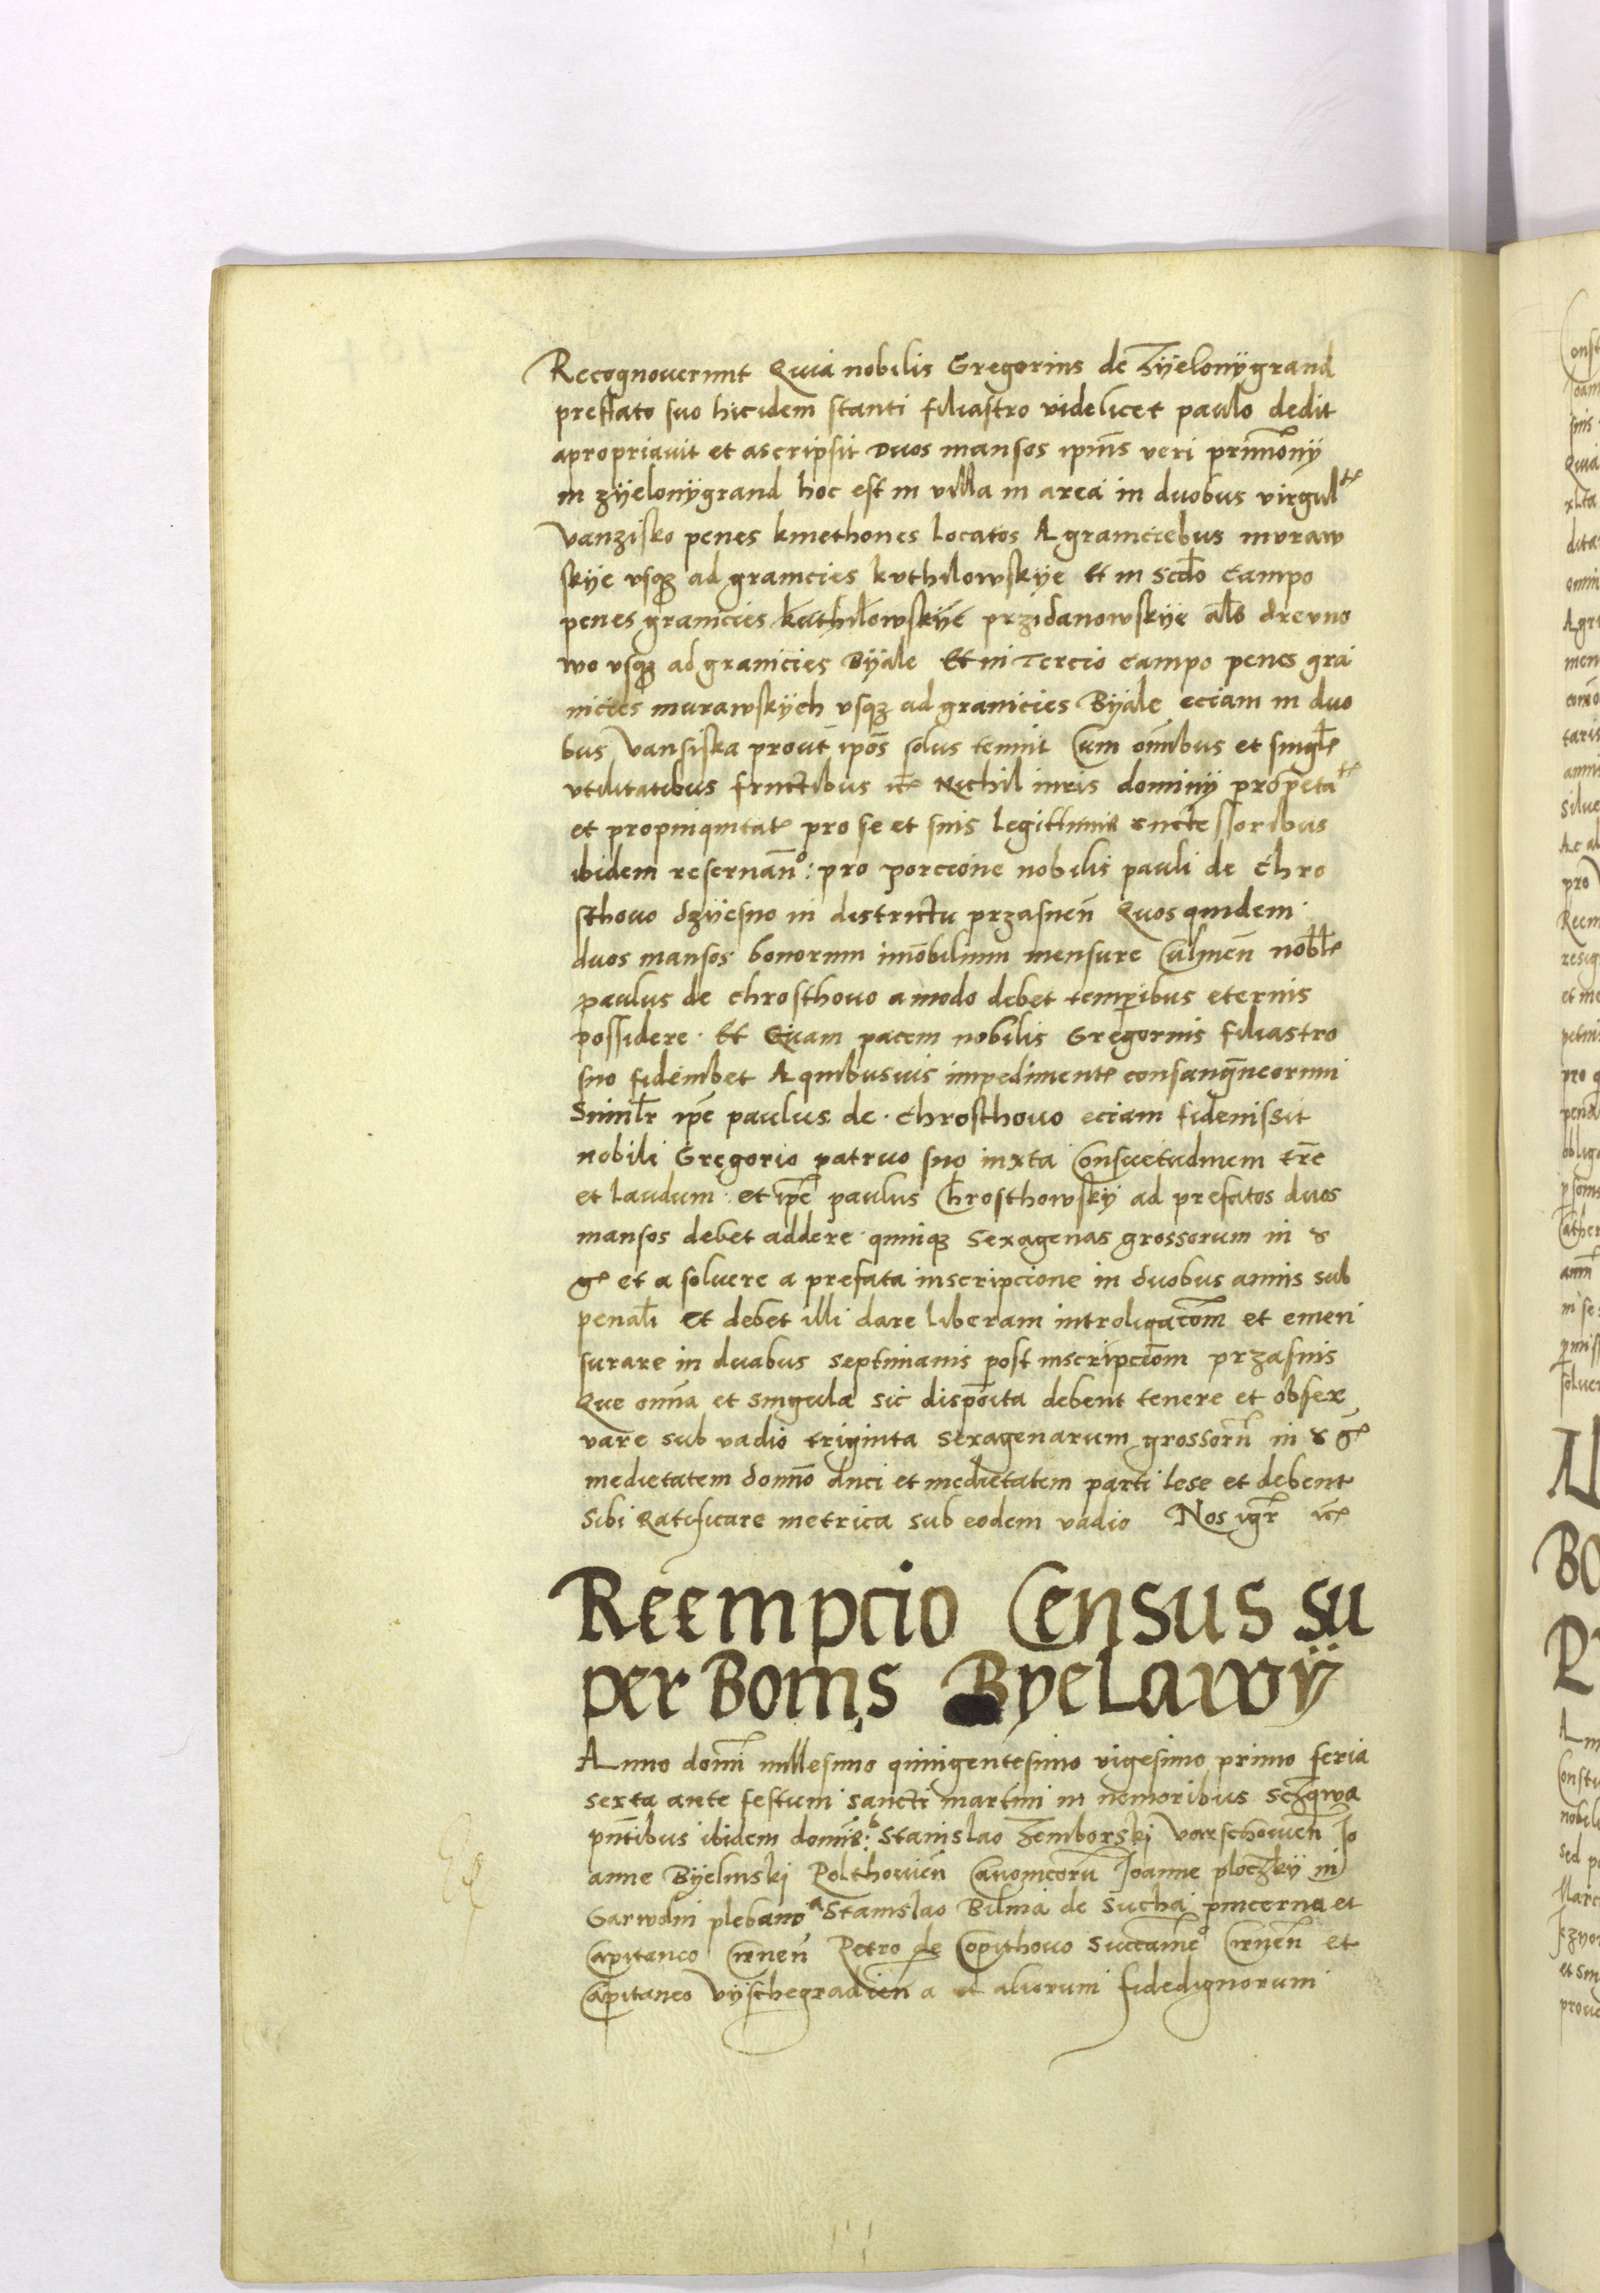 Recognouerunt Quia nobilis Gregorius de Zyelonygrand
preffato suo hicidem stanti filiastro videlicet paulo dedit
apropriauit et ascripsit Duos mansos ipius veri primony
in zyelonygrand hoc est in villa in area in duobus virgultꝭ
vanzisko penes kmethones locatos A graniciebus muraw
skye vsqꝫ ad granicies kuthilowskye Et in Scdo campo
penes granicies kuthilowskye przidanowskye als drevno
wo vsqꝫ ad granicies Byale Et in Tercio campo penes gra
nicies murawskych vsqꝫ ad granicies Byale eciam in duo
bus vansiska prout ipos solus tenuit Cum omibus et singlꝭ
vtilitatibus fructibus ꝛcꝭ Nichil iuris dominy propetatꝭ
et propinquitatꝭ pro se et suis legittimis successoribus
ibidem reseruano: pro porcione nobilis pauli de Chro
sthouo dzyesno in districtu przasnen Quos quidem
duos mansos bonorum imobilium mensure Culmen noblꝭ
paulus de chrosthouo amodo debet temporibus eternis
possidere. Et Quam pacem nobilis Gregorius filiastro
suo fideiubet A quibusuis impedimentꝭ consanguneorum
Similr ipe paulus de. Chrosthouo eciam fideiussit
nobili Gregorio patruo suo iuxta Consuetudinem tre
et laudum. et ipe paulus Chrosthowsky ad prefatos duos
mansos debet addere quinqꝫ Sexagenas grossorum in &
gꝭ et a soluere a prefata inscripcione in duobus annis sub
penali et debet illi dare liberam introligacom et emen
surare in duabus septimanis post inscripciom przasnis
Que omia et singula sic disposita debent tenere et obser
vare sub vadio triginta sexagenarum grossoru in & gꝭ
medietatem domio duci et medietatem parti lese et debent
Sibi Ratificare metrica sub eodem vadio Nos igr ꝛcꝭ
Reempcio Census su
per Bonis Byelawy
Anno domi millesimo quingentesimo vigesimo primo feria
sexta ante festum sancti martini in nemoribus Sczqwa
pntibus ibidem domis b Stanislao Zemborski varschouien Jo
anne Byelinski Polthouien Canonicoru Joanne ploczky in
Garwolin plebano a Stanislao Bilina de Sucha pincerna et
Capitaneo Cirnen Petro de Copithouo Succameo Cirnen et
Capitaneo vyschegradien a et aliorum fidedignorum